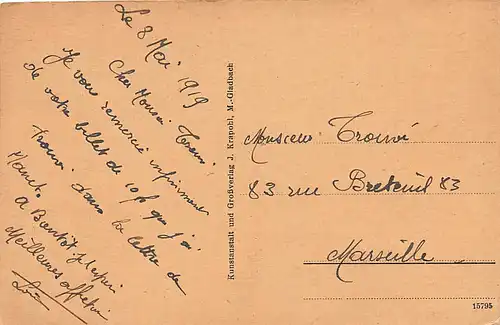 Le 8 Mai 1919
Cher Monsieur Trouvé
Je vous remercie infiniment
de votre billet de 10 f que j'ai
trouvé dans la lettre de
A Bientôt j'espère
Meilleures
Kunstanstalt und Großverlag J. Krapohl, M.-Gladbach
Monsieur
83 rue Breteuil 83
Marseille
15795